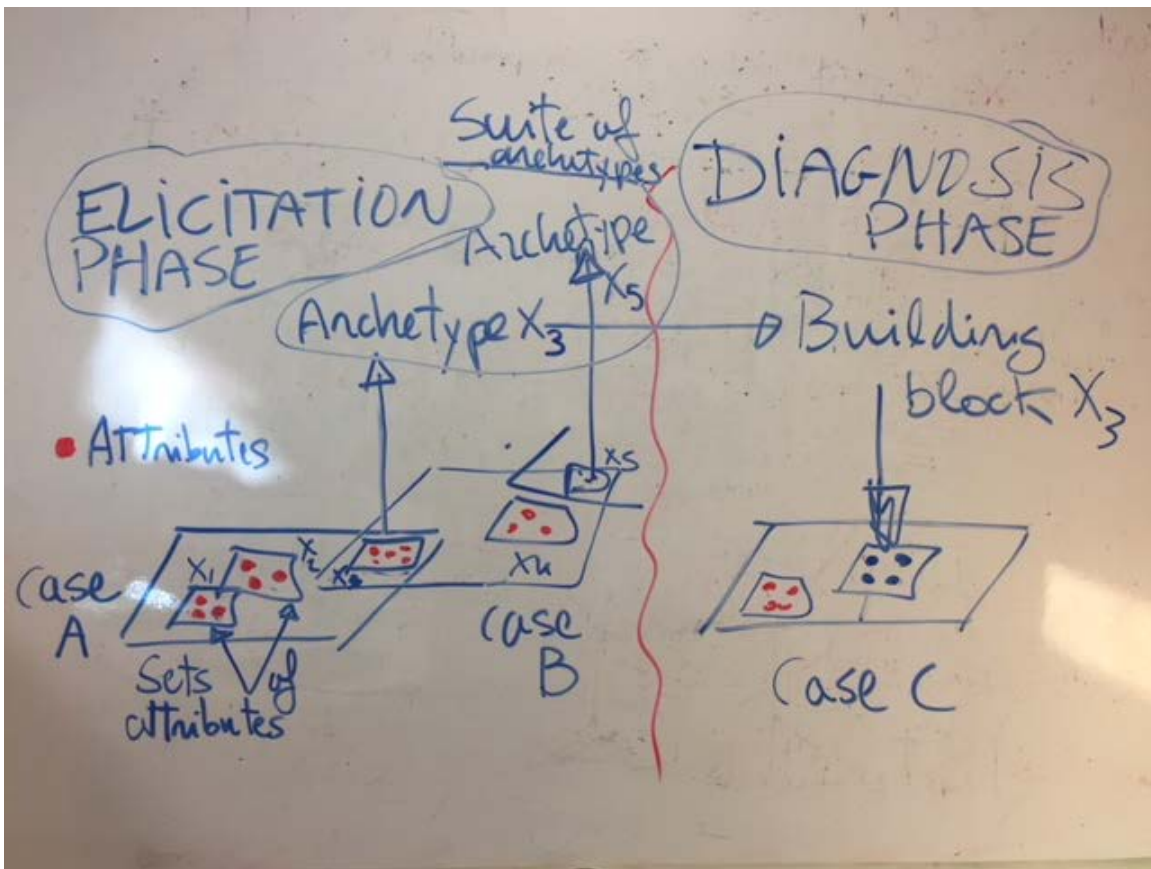 Suite of
archetypes
ELICITATION
PHASE
DIAGNOSIS
PHASE
Archetype
X5
Archetype X3
Building
block X3
Attributes
X5
X1
X2
X3
X4
Case
A
Case
B
Case C
Sets of
attributes